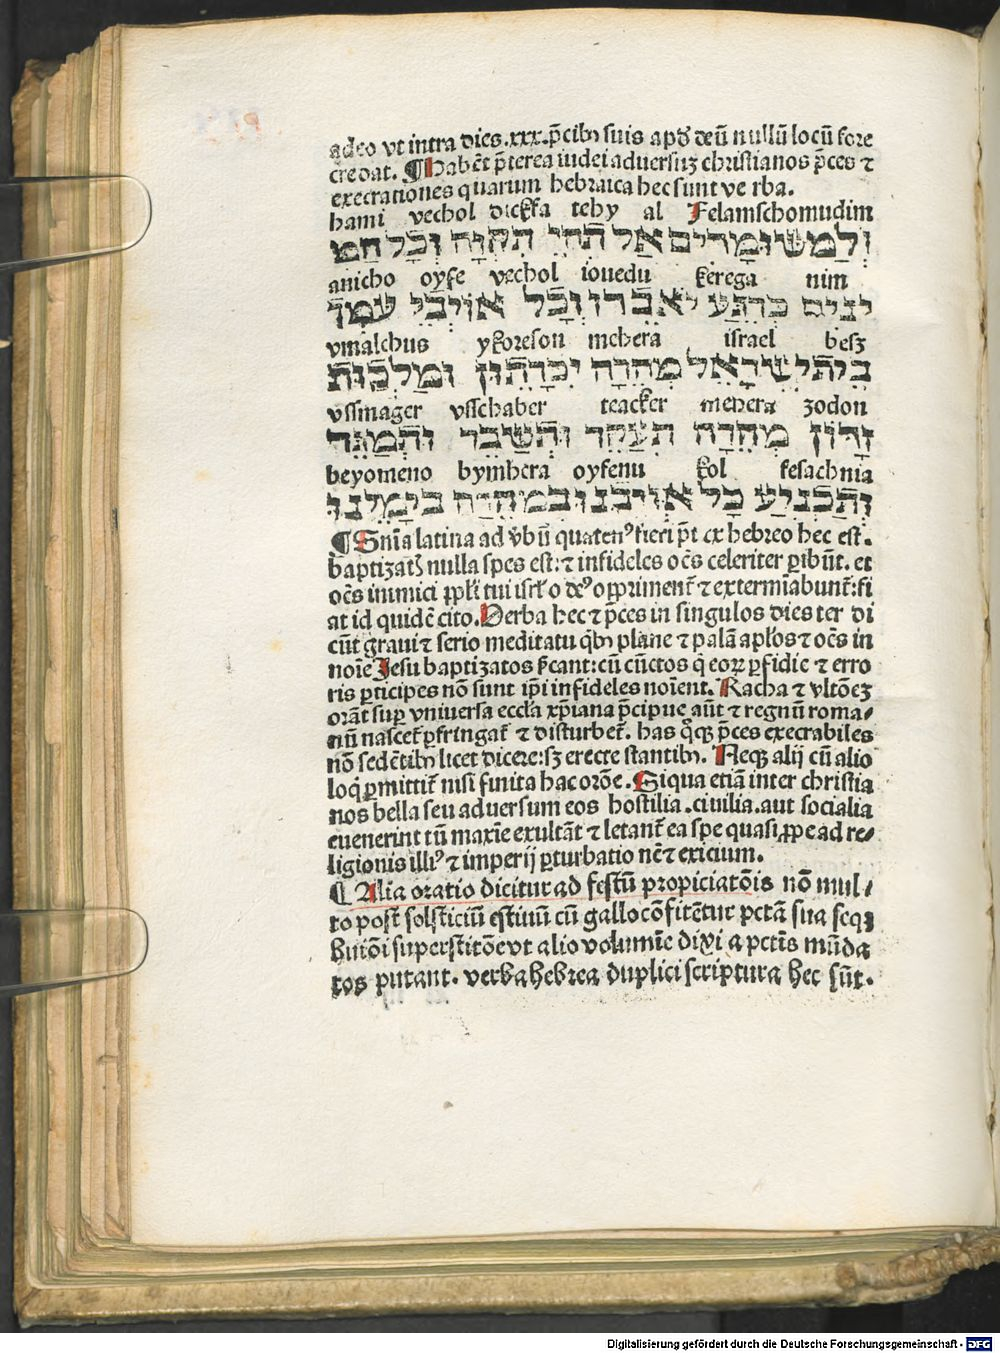 adeo vt intra dies.xxx.p̄cib9 suis apd̕ deū nullū locū fore
credat. ¶ Habēt p̄terea iudei aduersuz christianos p̄ces ⁊
execrationes quarum hebraica hec sunt ve rba.
hami vechol dickfa tehy al Felamschomudim
וְלַמְשׁוּמָדִים אַל תְּהִי תִקְוָה וְכָל המ
anicho oyfe vechol iouedu kerega nim
ינים כְּרֶגַע יֹאבֵדוּ וְכָל אוֹיְבֵי עמך
vmalchus ykoreson mehera israel besz
בית ישראל מְהֵרָה יִכָּרֵתוּן וּמַלְכוּת
vssmager vsschaber teacker mehera zodon
זָדוֹן מְהֵרָה תעקר ותשבר ותמגר
beyomeno bymhera oyfenu kol fesachnia
וְתַכְנִיעַ כָּל אוֹיְבֵנוּ בִּמְהֵרָה בְיָמֵינוּ
¶ Snīa latina ad v̕bū quaten9 fieri pt̄ ex hebreo hec est.
baptizatis nulla spes est: ⁊ infideles oēs celeriter ꝑibūt. et
oēs inimici ppl̕i tui isrl̕ o de9 opprimenť ⁊ extermīabunť: fi
at id quidē cito. Verba hec ⁊ p̄ces in singulos dies ter di
cūt graui ⁊ serio meditatu qb9 plane ⁊ palā aplos ⁊ oēs in
noīe Jesu baptizatos s̄cant: cū cūctos q eorꝝ ꝑfidie ⁊ erro
ris ꝑticipes nō sunt ip̄i infideles noīent. Racha ⁊ vltōez
orāt suꝑ vniuersa eccl̕a xp̄iana p̄cipue aūt ⁊ regnū roma⸗
nū nasceť ꝑfringať ⁊ disturbeť. has qꝫ p̄ces execrabiles
nō sedētib9 licet dicere: sꝫ erecte stantib9. Neqꝫ alij cū alio
loqi ꝑmittiť nisi finita hac orōe. Siqua etiā inter christia
nos bella seu aduersum eos hostilia .ciuilia. aut socialia
euenerint tū maxīe exultāt ⁊ letanť ea spe quasi ꝓpe ad re⸗
ligionis illi9 ⁊ imperij ꝑturbatio nē ⁊ exicium.
¶ Alia oratio dicitur ad festū propiciatōis nō mul⸗
to post̄ solsticiū estiuū cū gallo cōfitētur pctā sua seqꝫ
huiōi superstitōe vt alio volumīe dixi a pctīs mūda
tos putant. verba hebrea duplici scriptura hec sūt.
Digitalisierung gefördert durch die Deutsche Forschungsgemeinschaft - DFG